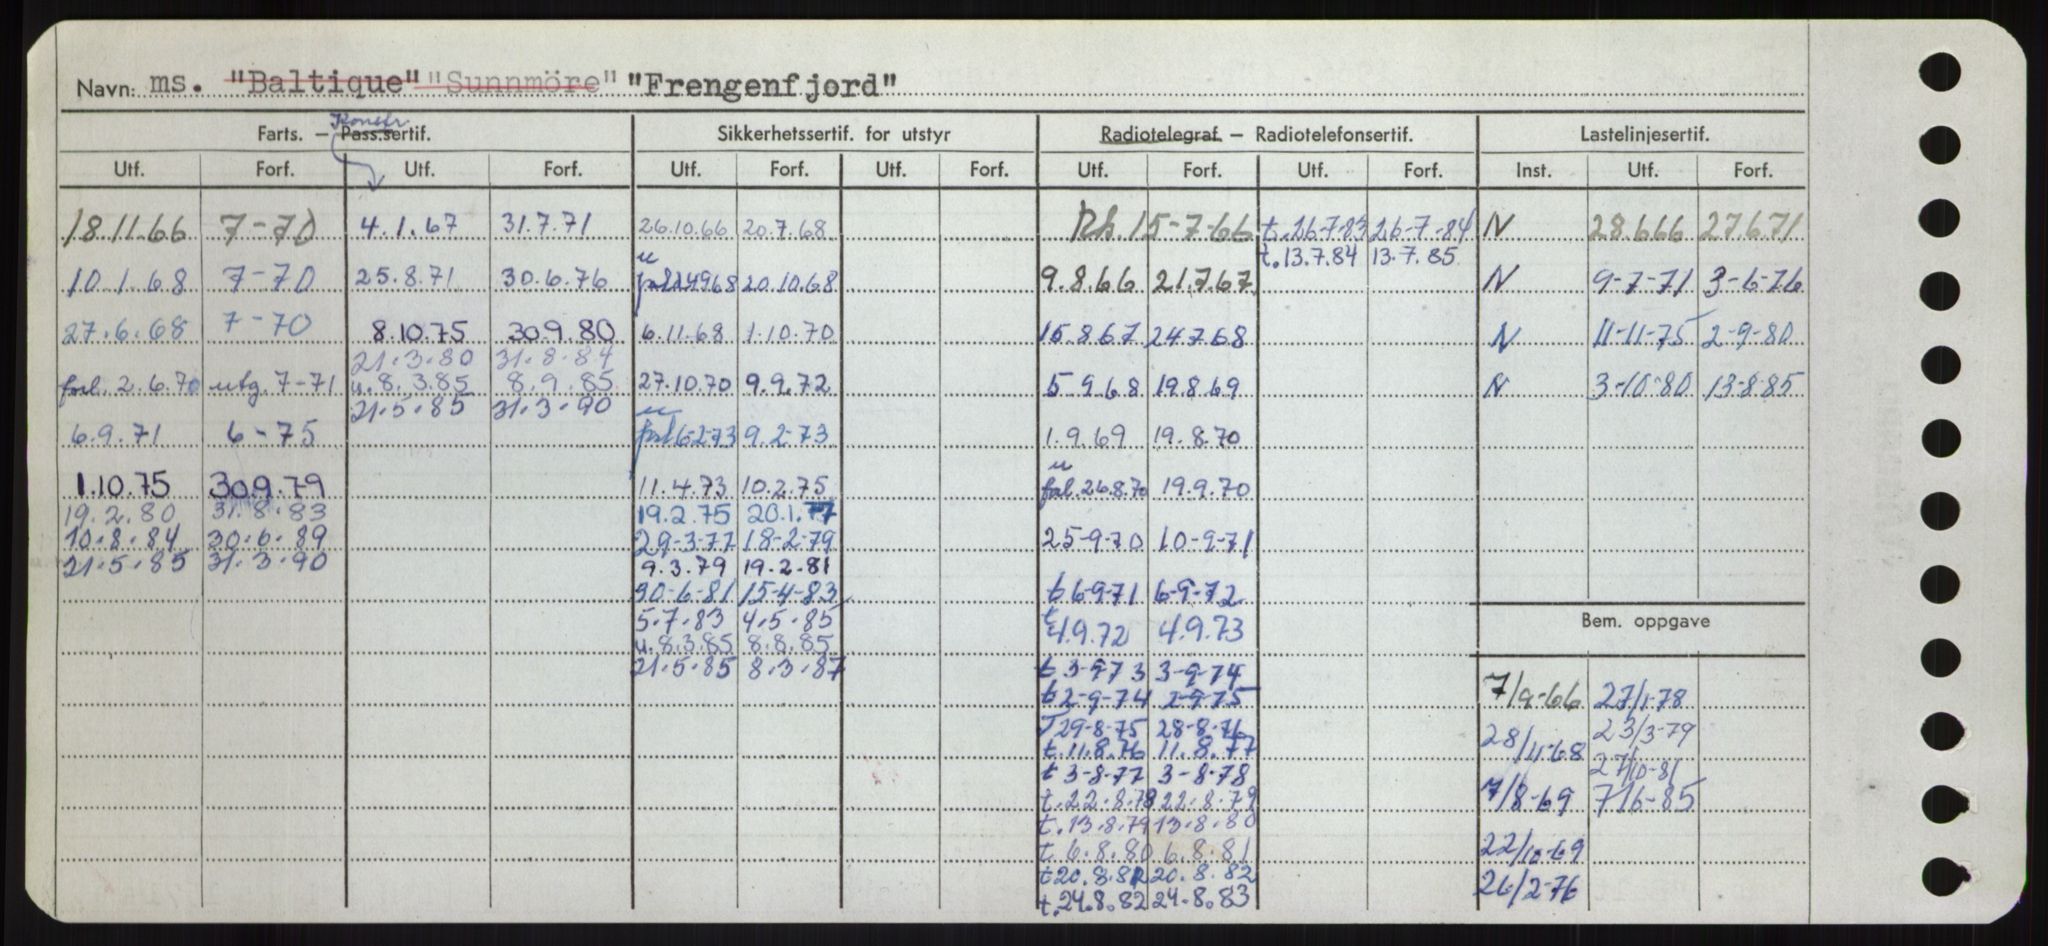 Navn: ms. "Baltique" "Sunnmöre" "Frengenfjord"
Konstr.
Farts. — Pass.sertif. Sikkerhetssertif. for utstyr Radiotelegraf — Radiotelefonsertif. Lastelinjesertif.
Utf. Forf. Utf. Forf. Utf. Forf. Utf. Forf. Utf. Forf. Utf. Forf. Inst. Utf. Forf.
18.11.66 7-70 4.1.67 31.7.71 26.10.66 20.7.68 Rh. 15-7-66 t. 26-7-83 26-7-84 N 28.6.66 27.6.71
t. 13.7.84 13.7.85
10.1.68 7-70 25.8.71 30.6.76 20.10.68 9.8.66 21.7.67 N 9-7-71 3-6-76
27.6.68 7-70 8.10.75 30.9.80 6.11.68 1.10.70 15.8.67 24.7.68 N 11-11-75 2-9-80
21.3.80 31.8.84
forl. 2.6.70 utg. 7-71 u. 8.3.85 8.9.85 27.10.70 9.9.72 5.9.68 19.8.69 N 3-10-80 13-8-85
21.5.85 31.3.90
u
6.9.71 6-75 forl 6-2-73 9.2.73 1.9.69 19.8.70
u
1.10.75 30.9.79 11.4.73 10.2.75 fol. 26.8.70 19.9.70
19.2.80 31.8.83 19.2.75 20.1.77
10.8.84 30.6.89 29-3-77 18-2-79 25-9-70 10-9-71
21.5.85 31.3.90 9.3.79 19.2.81
30-6-81 15-4-83 t 6-9-71 6-9-72
5.7.83 4.5.85 t 4.9.72 4.9.73 Bem. oppgave
u. 8.3.85 8.8.85
21.5.85 8.3.87 t 3-9-73 3-9-74
t 2-9-74 2-9-75 7/9-66 27/1-78
T 29-8-75 28-8-76 23/3-79
t. 11.8.76 11.8.77 28/11-68
t 3-8-77 3-8-78 27/10-81
t. 22.8.78 22.8.79 7/8-69 7/6-85
t. 13.8.79 13.8.80
t. 6.8.80 6.8.81 22/10-69
t 20.8.81 20.8.82 26/2-76
t. 24.8.82 24.8.83